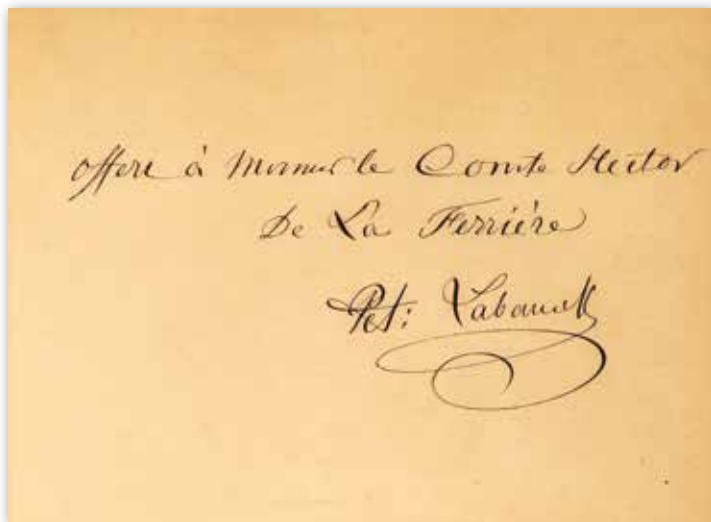 offert à Monsieur le Comte Hector
De La Ferrière
Pet: